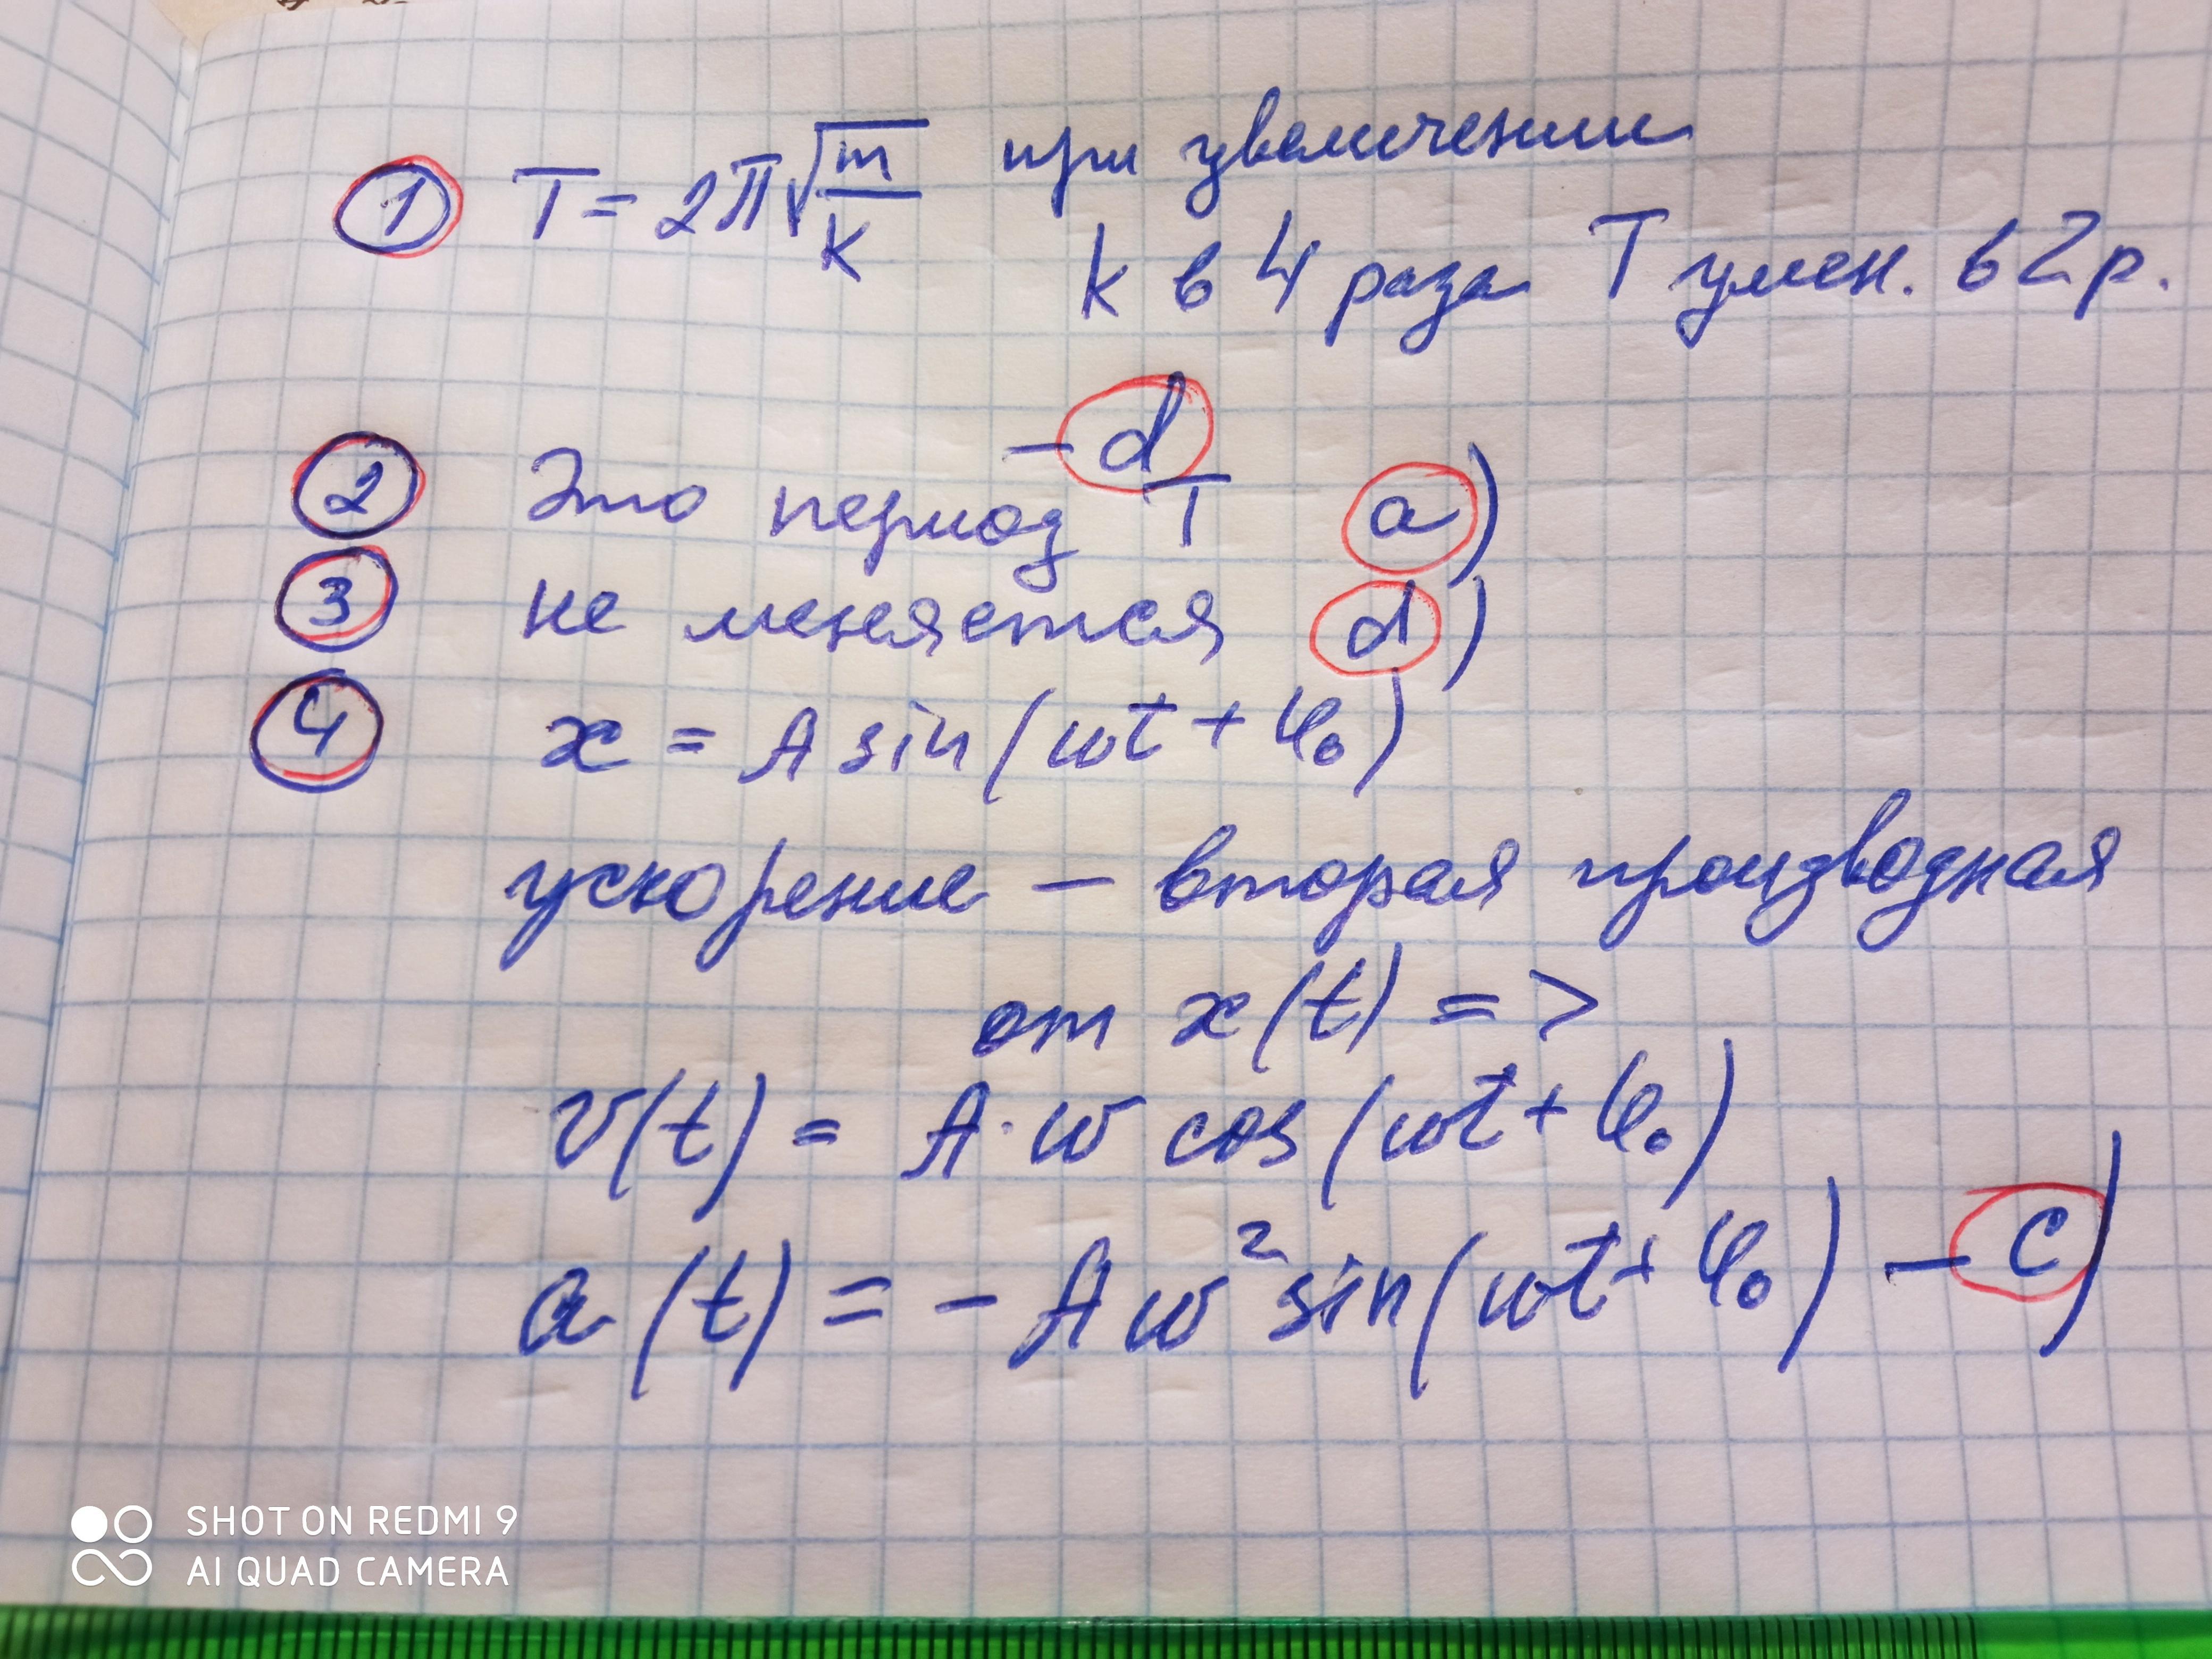 ① T = 2π√(m/k) при увеличении
k в 4 раза T умен. в 2 р.
– d
② Это период T a)
③ не меняется d)
④ x = A sin(ωt + φ₀)
ускорение – вторая производная
от x(t) =>
v(t) = A·ω cos(ωt + φ₀)
a(t) = – Aω² sin(ωt + φ₀) – c)
SHOT ON REDMI 9
AI QUAD CAMERA